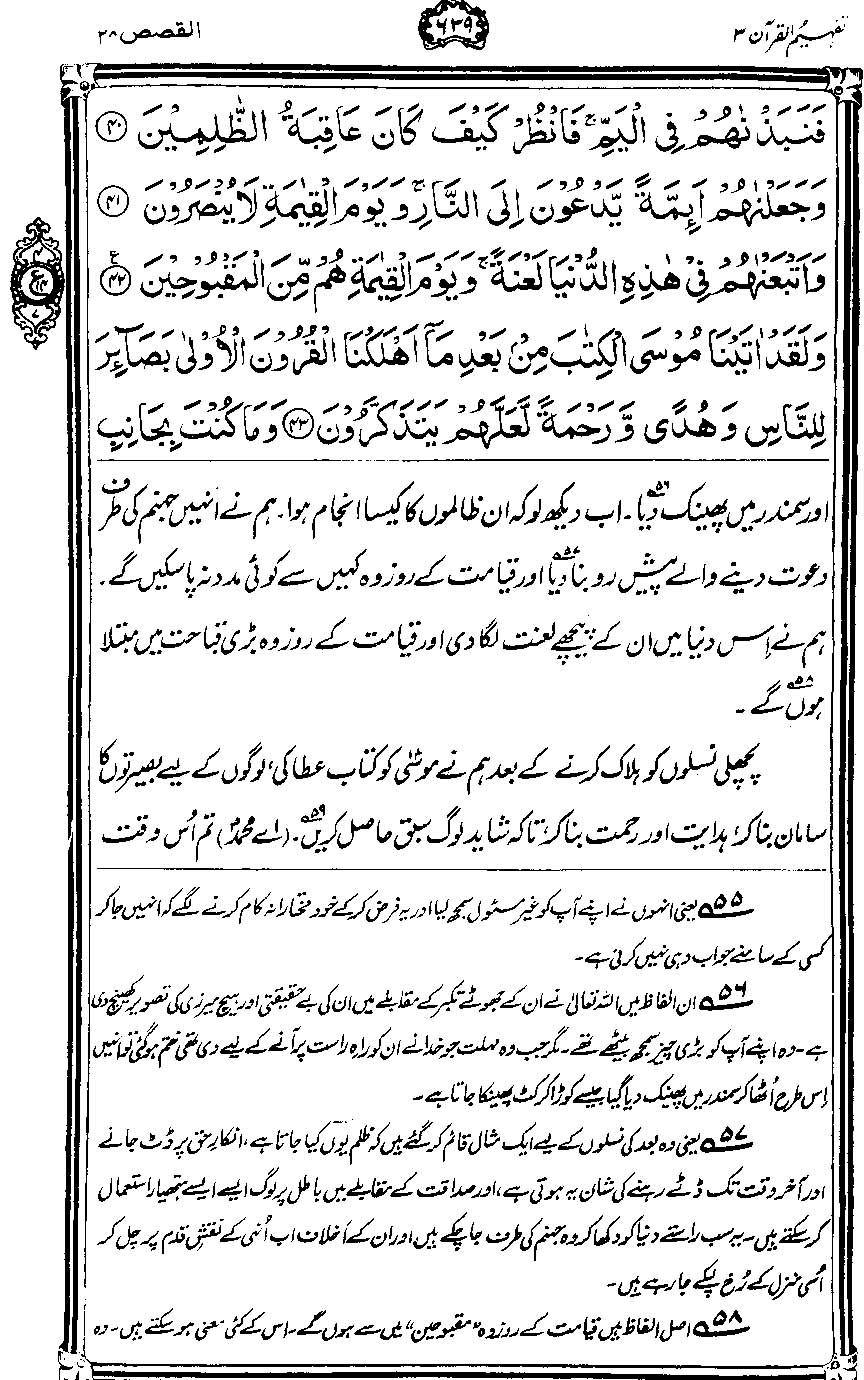 تفہیم القرآن ۳
۶۳۹
القصص ۲۸
فَنَبَذْنٰهُمْ فِی الْیَمِّ ۚ فَانْظُرْ كَیْفَ كَانَ عَاقِبَةُ الظّٰلِمِیْنَ ﴿۴۰﴾
وَجَعَلْنٰهُمْ اَىِٕمَّةً یَّدْعُوْنَ اِلَى النَّارِ ۚ وَیَوْمَ الْقِیٰمَةِ لَا یُنْصَرُوْنَ ﴿۴۱﴾
وَاَتْبَعْنٰهُمْ فِیْ هٰذِهِ الدُّنْیَا لَعْنَةً ۚ وَیَوْمَ الْقِیٰمَةِ هُمْ مِّنَ الْمَقْبُوْحِیْنَ ﴿۴۲﴾ ع
وَلَقَدْ اٰتَیْنَا مُوْسَى الْكِتٰبَ مِنْۢ بَعْدِ مَاۤ اَهْلَكْنَا الْقُرُوْنَ الْاُوْلٰى بَصَآىِٕرَ
لِلنَّاسِ وَهُدًى وَّرَحْمَةً لَّعَلَّهُمْ یَتَذَكَّرُوْنَ ﴿۴۳﴾ وَمَا كُنْتَ بِجَانِبِ
اور سمندر میں پھینک دیا۵۶۔ اب دیکھ لو کہ ان ظالموں کا کیسا انجام ہوا۔ ہم نے انہیں جہنم کی طرف
دعوت دینے والے پیش رو بنا دیا۵۷ اور قیامت کے روز وہ کہیں سے کوئی مدد نہ پا سکیں گے۔
ہم نے اِس دنیا میں ان کے پیچھے لعنت لگا دی اور قیامت کے روز وہ بڑی قباحت میں مبتلا
ہوں گے۵۸۔
پچھلی نسلوں کو ہلاک کرنے کے بعد ہم نے موسٰیؑ کو کتاب عطا کی، لوگوں کے لیے بصیرتوں کا
سامان بنا کر، ہدایت اور رحمت بنا کر، تاکہ شاید لوگ سبق حاصل کریں۵۹۔ (اے محمدؐ) تم اُس وقت
۵۵ یعنی انہوں نے اپنے آپ کو غیر مسئول سمجھ لیا اور یہ فرض کر کے خود مختارانہ کام کرنے لگے کہ انہیں جا کر
کسی کے سامنے جواب دہی نہیں کرنی ہے۔
۵۶ ان الفاظ میں اللہ تعالیٰ نے ان کے جھوٹے تکبر کے مقابلے میں ان کی بے حقیقتی اور ہیچ میرزی کی تصویر کھینچ دی
ہے۔ وہ اپنے آپ کو بڑی چیز سمجھ بیٹھے تھے۔ مگر جب وہ مہلت جو خدا نے ان کو راہ راست پر آنے کے لیے دی تھی ختم ہو گئی تو انہیں
اِس طرح اُٹھا کر سمندر میں پھینک دیا گیا جیسے کوڑا کرکٹ پھینکا جاتا ہے۔
۵۷ یعنی وہ بعد کی نسلوں کے لیے ایک مثال قائم کر گئے ہیں کہ ظلم یوں کیا جاتا ہے، انکارِ حق پر ڈٹ جانے
اور آخر وقت تک ڈٹے رہنے کی شان یہ ہوتی ہے، اور صداقت کے مقابلے میں باطل پر لوگ ایسے ایسے ہتھیار استعمال
کر سکتے ہیں۔ یہ سب راستے دنیا کو دکھا کر وہ جہنم کی طرف جا چکے ہیں اور ان کے اَخلاف اب اُنہی کے نقشِ قدم پر چل کر
اُسی منزل کے رُخ لپکے جا رہے ہیں۔
۵۸ اصل الفاظ ہیں قیامت کے روز وہ ”مقبوحین“ میں سے ہوں گے۔ اس کے کئی معنی ہو سکتے ہیں۔ وہ